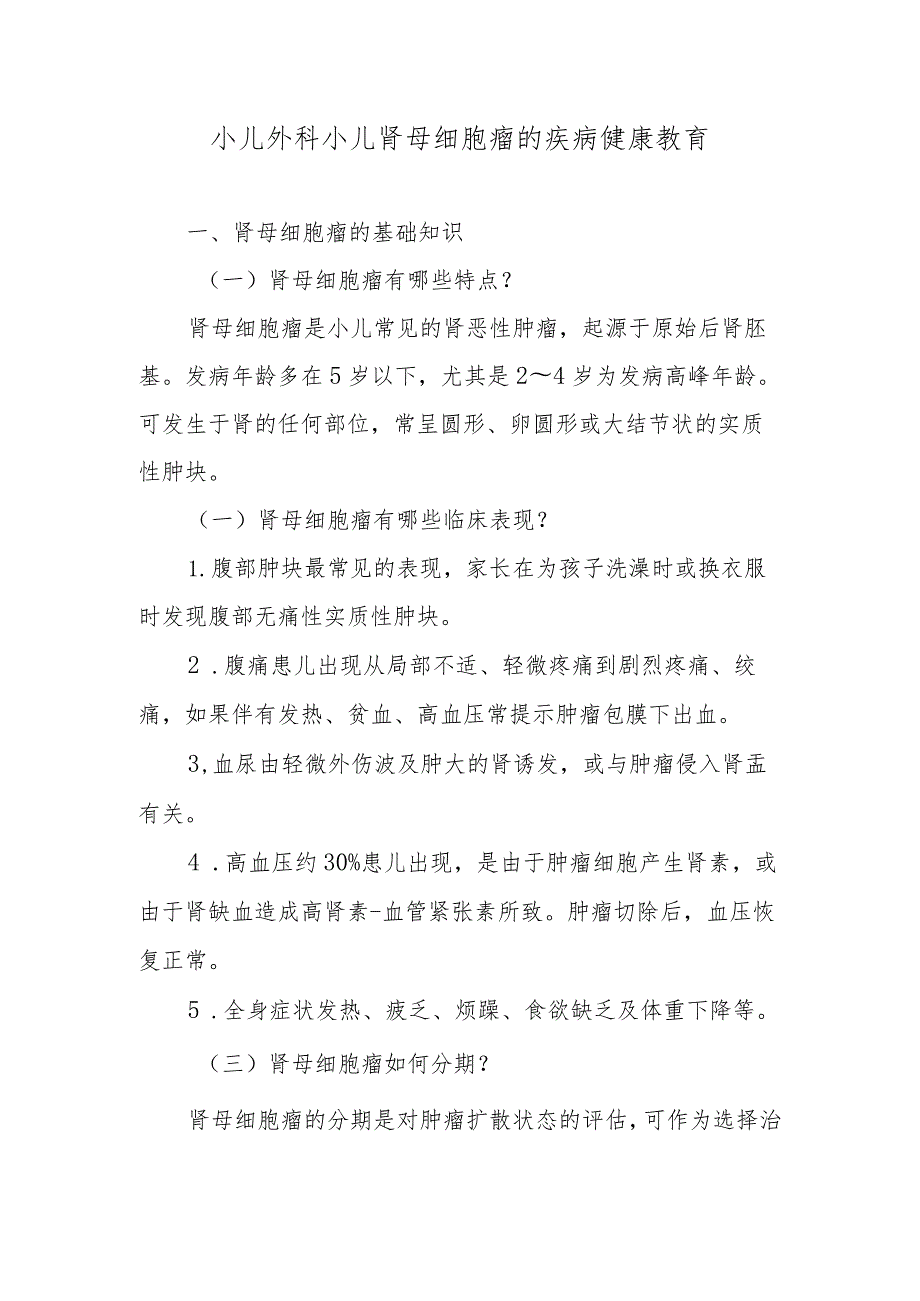 小儿外科小儿肾母细胞瘤的疾病健康教育
一、肾母细胞瘤的基础知识
（一）肾母细胞瘤有哪些特点？
肾母细胞瘤是小儿常见的肾恶性肿瘤，起源于原始后肾胚
基。发病年龄多在5岁以下，尤其是2～4岁为发病高峰年龄。
可发生于肾的任何部位，常呈圆形、卵圆形或大结节状的实质
性肿块。
（一）肾母细胞瘤有哪些临床表现？
1.腹部肿块最常见的表现，家长在为孩子洗澡时或换衣服
时发现腹部无痛性实质性肿块。
2.腹痛患儿出现从局部不适、轻微疼痛到剧烈疼痛、绞
痛，如果伴有发热、贫血、高血压常提示肿瘤包膜下出血。
3,血尿由轻微外伤波及肿大的肾诱发，或与肿瘤侵入肾盂
有关。
4.高血压约30%患儿出现，是由于肿瘤细胞产生肾素，或
由于肾缺血造成高肾素-血管紧张素所致。肿瘤切除后，血压恢
复正常。
5.全身症状发热、疲乏、烦躁、食欲缺乏及体重下降等。
（三）肾母细胞瘤如何分期？
肾母细胞瘤的分期是对肿瘤扩散状态的评估,可作为选择治